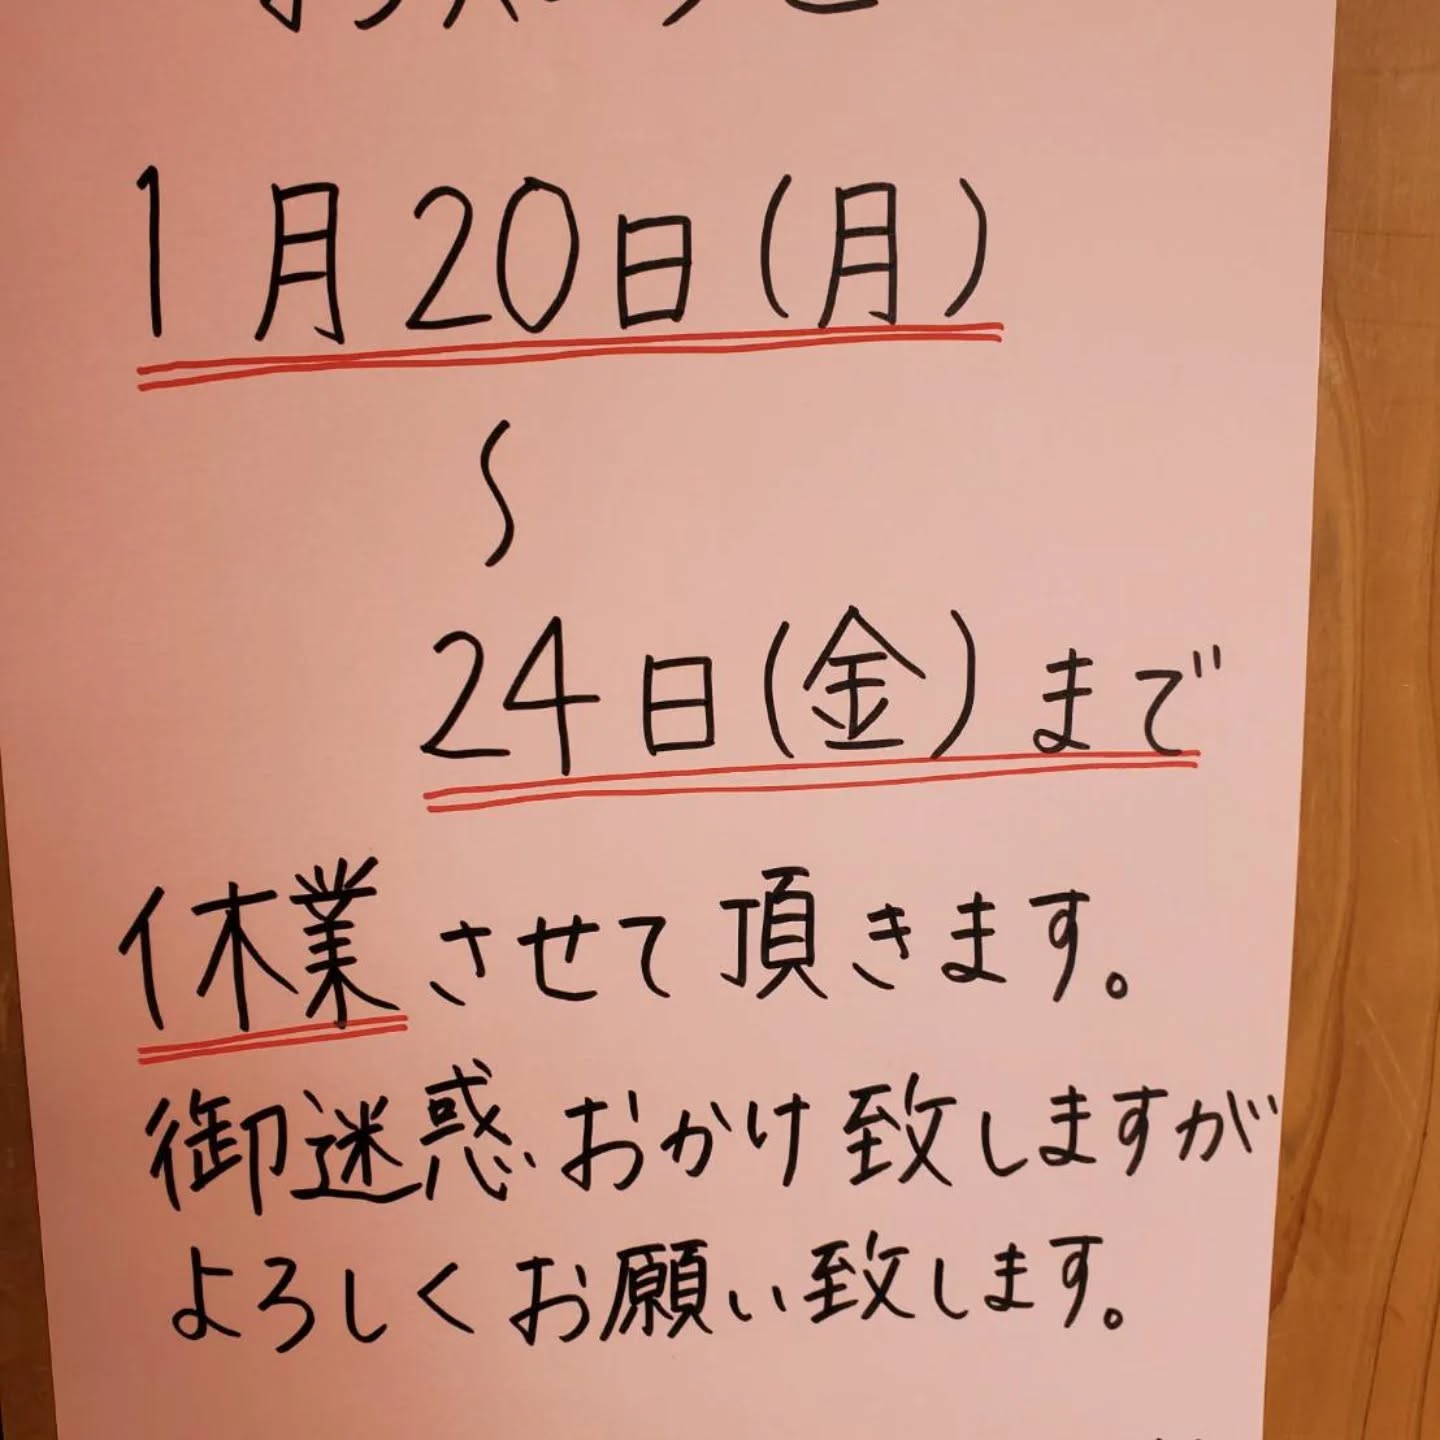 1月20日(月)
〜
24日(金)まで
休業させて頂きます。
御迷惑おかけ致しますが
よろしくお願い致します。